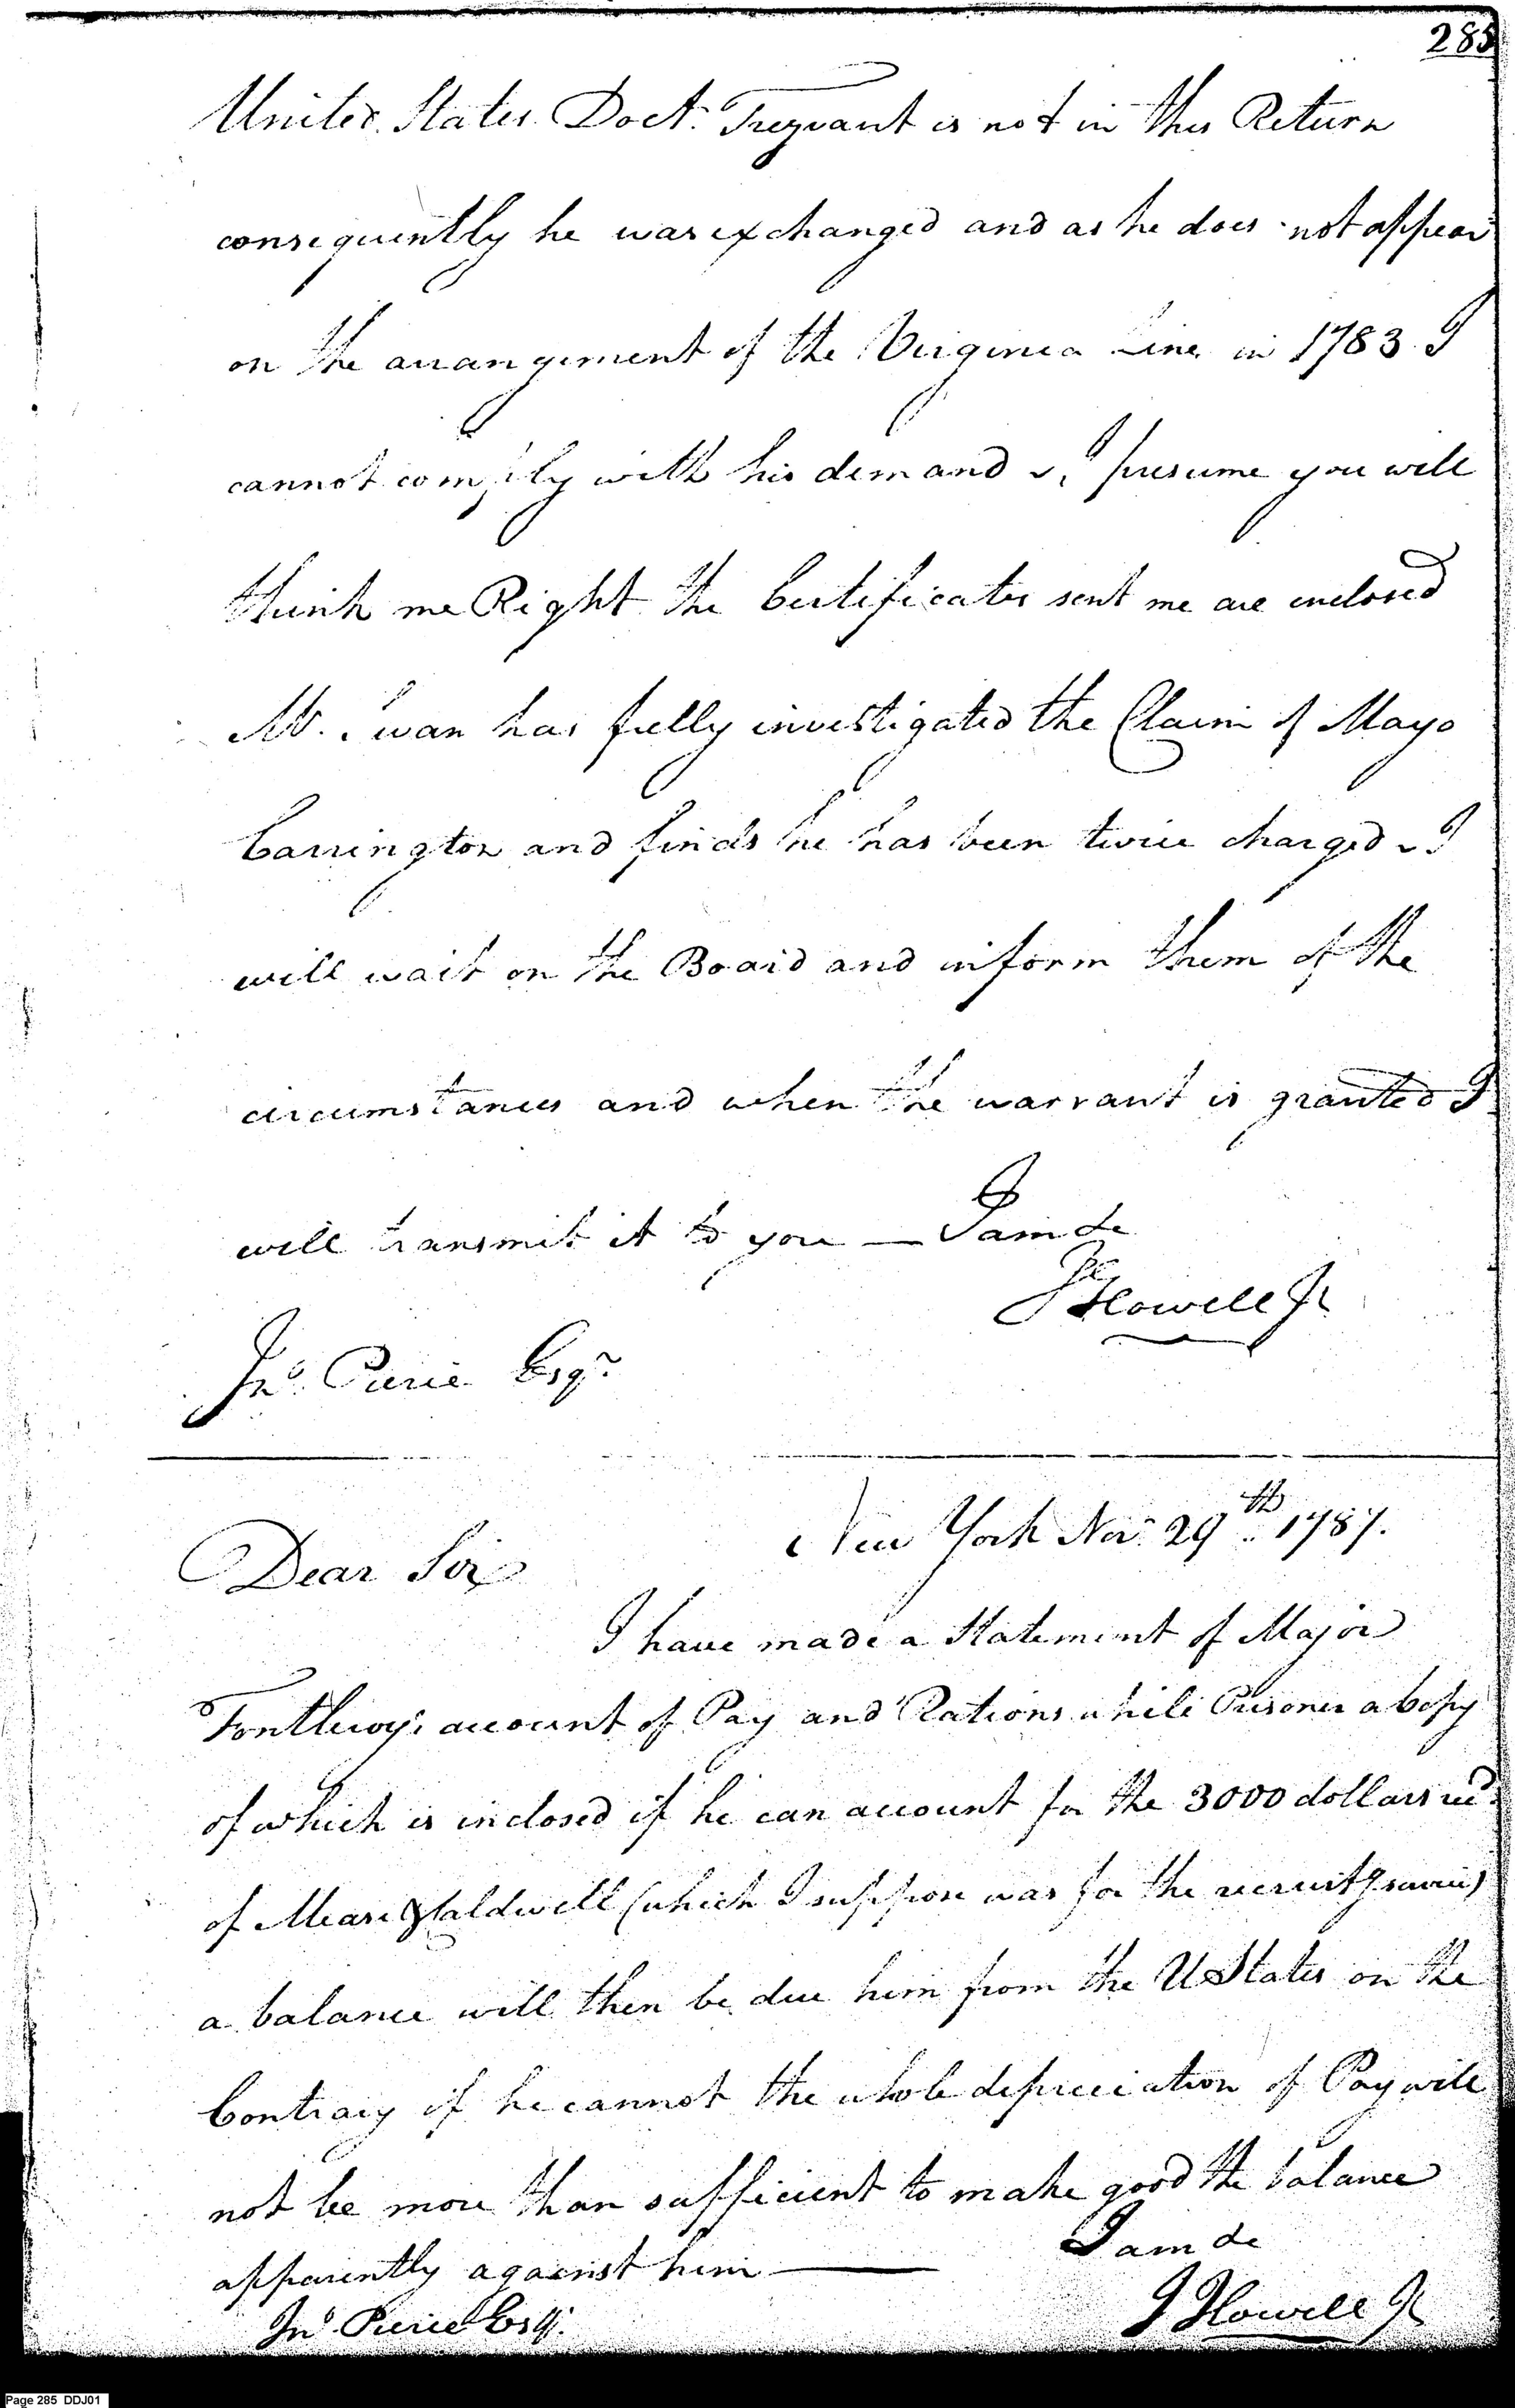 285
United States Doct. Trezvant is not in this Return
consequently he was exchanged and as he does not appear
on the arrangement of the Virginia Line in 1783. I
cannot comply with his demand & I presume you will
think me Right the Certificates sent me are enclosed
Mr. Swan has fully investigated the Claim of Mayo
Carrington and finds he has been twice charged & I
will wait on the Board and inform them of the
circumstances and when the warrant is granted I
will transmit it to you — I am &c
J Howell Jr
Jno. Pierce Esqr.
New York Nov. 29th. 1787.
Dear Sir
I have made a Statement of Major
account of Pay and Rations while Prisoner a Copy
of which is inclosed if he can account for the 3000 dollars recd.
of Mease & Caldwell (which I suppose was for the recruitg service)
a balance will then be due him from the U States on the
Contrary if he cannot the whole depreciation of Pay will
not be more than sufficient to make good the balance
apparently against him —
I am &c
Jno. Pierce Esqr.
J Howell Jr
Page 285 DDJ01